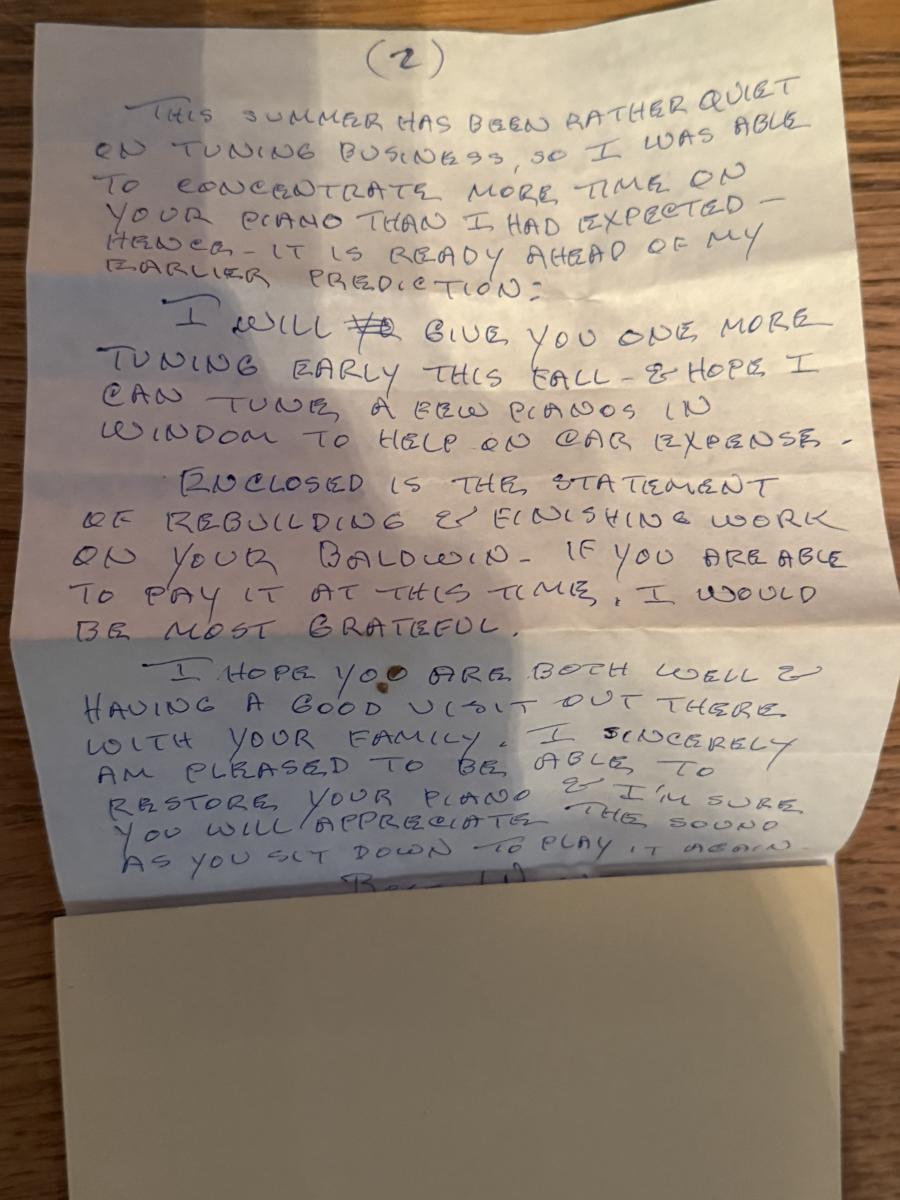 (2)
THIS SUMMER HAS BEEN RATHER QUIET
ON TUNING BUSINESS, SO I WAS ABLE
TO CONCENTRATE MORE TIME ON
YOUR PIANO THAN I HAD EXPECTED –
HENCE – IT IS READY AHEAD OF MY
EARLIER PREDICTION:
I WILL GIVE YOU ONE MORE
TUNING EARLY THIS FALL – & HOPE I
CAN TUNE A FEW PIANOS IN
WINDOM TO HELP ON CAR EXPENSE.
ENCLOSED IS THE STATEMENT
OF REBUILDING & FINISHING WORK
ON YOUR BALDWIN – IF YOU ARE ABLE
TO PAY IT AT THIS TIME, I WOULD
BE MOST GRATEFUL.
I HOPE YOU ARE BOTH WELL &
HAVING A GOOD VISIT OUT THERE
WITH YOUR FAMILY. I SINCERELY
AM PLEASED TO BE ABLE TO
RESTORE YOUR PIANO & I'M SURE
YOU WILL APPRECIATE THE SOUND
AS YOU SIT DOWN TO PLAY IT AGAIN.